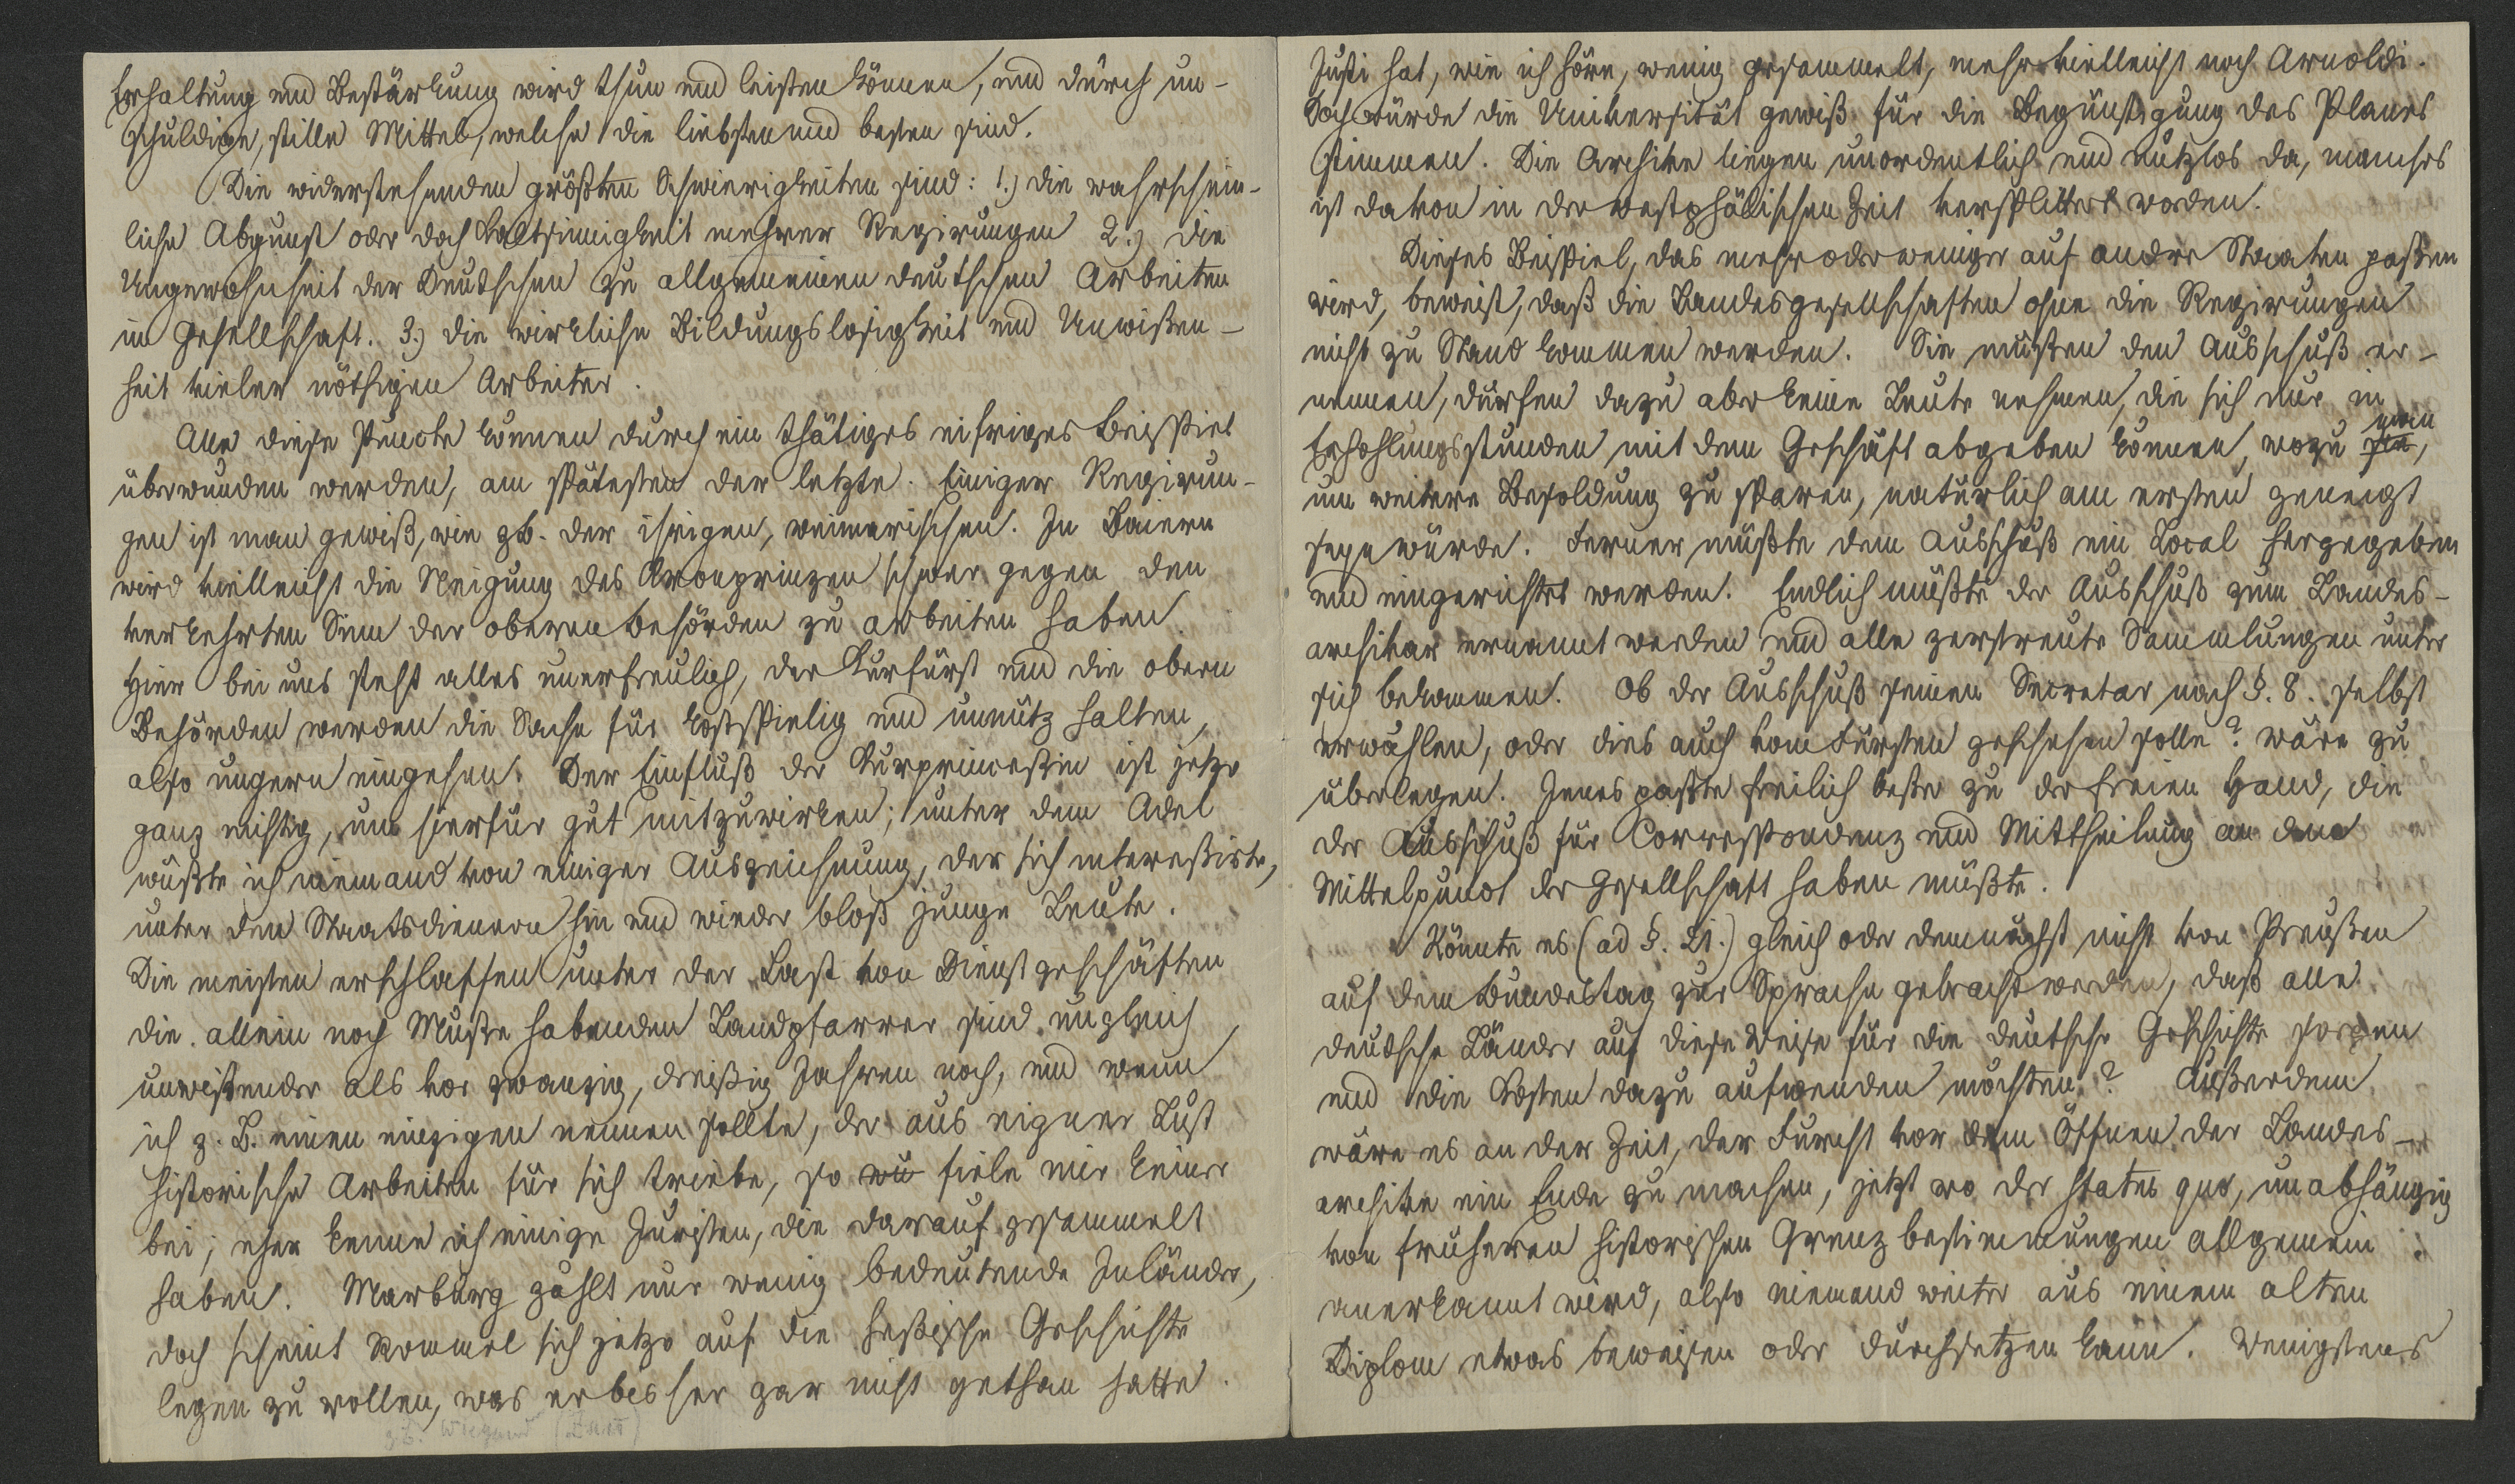 Erhaltung und Bestärkung wird thun und leisten können, und durch un-
schuldige, stille Mittel, welche die liebsten und besten sind.
Die widerstehenden größten Schwierigkeiten sind: 1.) die wahrschein-
liche Abgunst oder doch Kaltsinnigkeit mehrer Regirungen 2.) die
Ungewohnheit der Deutschen zu allgemeinen deutschen Arbeiten
in Gesellschaft. 3.) die wirkliche Bildungslosigkeit und Unwißen-
heit vieler nöthigen Arbeiter.
Alle diese Puncte können durch ein thätiges eifriges Beispiel
überwunden werden, am spätesten der letzte. Einiger Regirun-
gen ist man gewiß, wie zb. der ihrigen, weimarischen. In Baiern
wird vielleicht die Neigung des Kronprinzen schwer gegen den
verkehrten Sinn der oberen Behörden zu arbeiten haben.
Hier bei uns steht alles unerfreulich, der Kurfürst und die obern
Behörden werden die Sache für kostspielig und unnütz halten,
also ungern eingehen. Der Einfluß der Kurprinceßin ist jetzo
ganz nichtig, um hierfür gut mitzuwirken; unter dem Adel
wüßte ich niemand von einiger Auszeichnung, der sich intereßirte,
unter den Staatsdienern hin und wieder bloß junge Leute.
Die meisten erschlaffen unter der Last von Dienstgeschäften
die allein noch Muße habenden Landpfarrer sind ungleich
unwißender als vor zwanzig, dreißig Jahren noch, und wenn
ich z. B. einen einzigen nennen sollte, der aus eigner Lust
historische Arbeiten für sich triebe, so wü fiele mir keiner
bei; eher kenne ich einige Juristen, die darauf gesammelt
haben. Marburg zählt nur wenig bedeutende Inländer,
doch scheint Rommel sich jetzo auf die heßische Geschichte
legen zu wollen, was er bisher gar nicht gethan hatte.
zb. Wiegand
Justi hat, wie ich höre, wenig gesammelt, mehr vielleicht noch Arnoldi.
Doch würde die Universität gewiß für die Begünstigung des Planes
stimmen. Die Archive liegen unordentlich und nutzlos da, manches
ist davon in der westphälischen Zeit versplittert worden.
Dieses Beispiel, das mehr oder weniger auf andere Staaten paßen
wird, beweist, daß die Landesgesellschaften ohne die Regirungen
nicht zu Stand kommen werden. Sie müßten den Ausschuß er-
nennen, dürfen dazu aber keine Leute nehmen, die sich nur in
Erhohlungsstunden mit dem Geschäft abgeben können, wozu sie man,
um weitere Besoldung zu sparen, natürlich am ersten geneigt
seyn würde. Ferner müßte dem Ausschuß ein Local hergegeben
und eingerichtet werden. Endlich müßte der Ausschuß zum Landes-
archivar ernannt werden und alle zerstreute Sammlungen unter
sich bekommen. Ob der Ausschuß seinen Secretar nach §. 8. selbst
erwählen, oder dies auch vom Fürsten geschehen solle? wäre zu
überlegen. Jenes paßte freilich beßer zu der freien Hand, die
der Ausschuß für Correspondenz und Mittheilung an dem
Mittelpunct der Gesellschaft haben müßte.
Könnte es (ad §. 21.) gleich oder demnächst nicht von Preußen
auf dem Bundestag zur Sprache gebracht werden, daß alle
deutsche Länder auf diese Weise für die deutsche Geschichte sorgen
und die Kosten dazu aufwenden möchten? Außerdem
wäre es an der Zeit, der Furcht vor dem Öffnen der Landes-
archive ein Ende zu machen, jetzt wo der status quo, unabhängig
von früheren historischen Grenzbestimmungen allgemein
anerkannt wird, also niemand weiter aus einem alten
Diplom etwas beweisen oder durchsetzen kann. Wenigstens